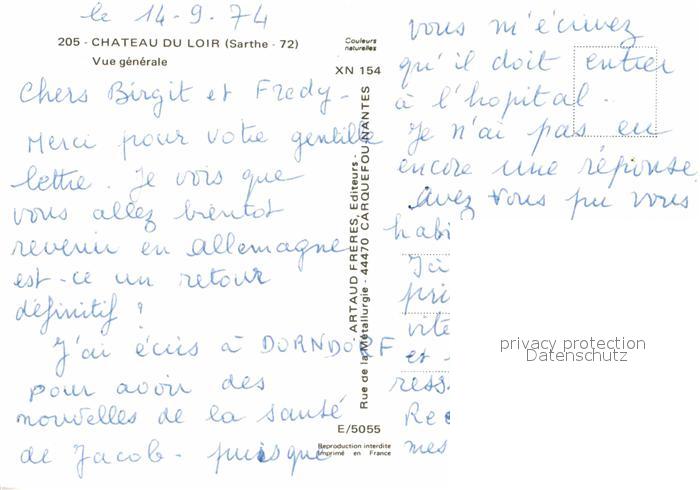 le 14-9.74
205 - CHATEAU DU LOIR (Sarthe - 72)
Vue générale
Couleurs
naturelles
XN 154
Chers Birgit et Fredy -
Merci pour votre gentille
lettre. Je vois que
vous allez bientot
revenir en allemagne
est-ce un retour
définitif ?
J'ai écris à DORNDORF
pour avoir des
nouvelles de la santé
de Jacob - puisque
ARTAUD FRÈRES, Editeurs -
Rue de la Métallurgie - 44470 CARQUEFOU-NANTES
E/5055
Reproduction interdite
Imprimé en France
vous m'écrivez
qu'il doit entrer
à l'hopital.
Je n'ai pas eu
encore une réponse.
avez vous pu vous
habi
J'ai
pri
vite
et
ress
Rec
mes
privacy protection
Datenschutz